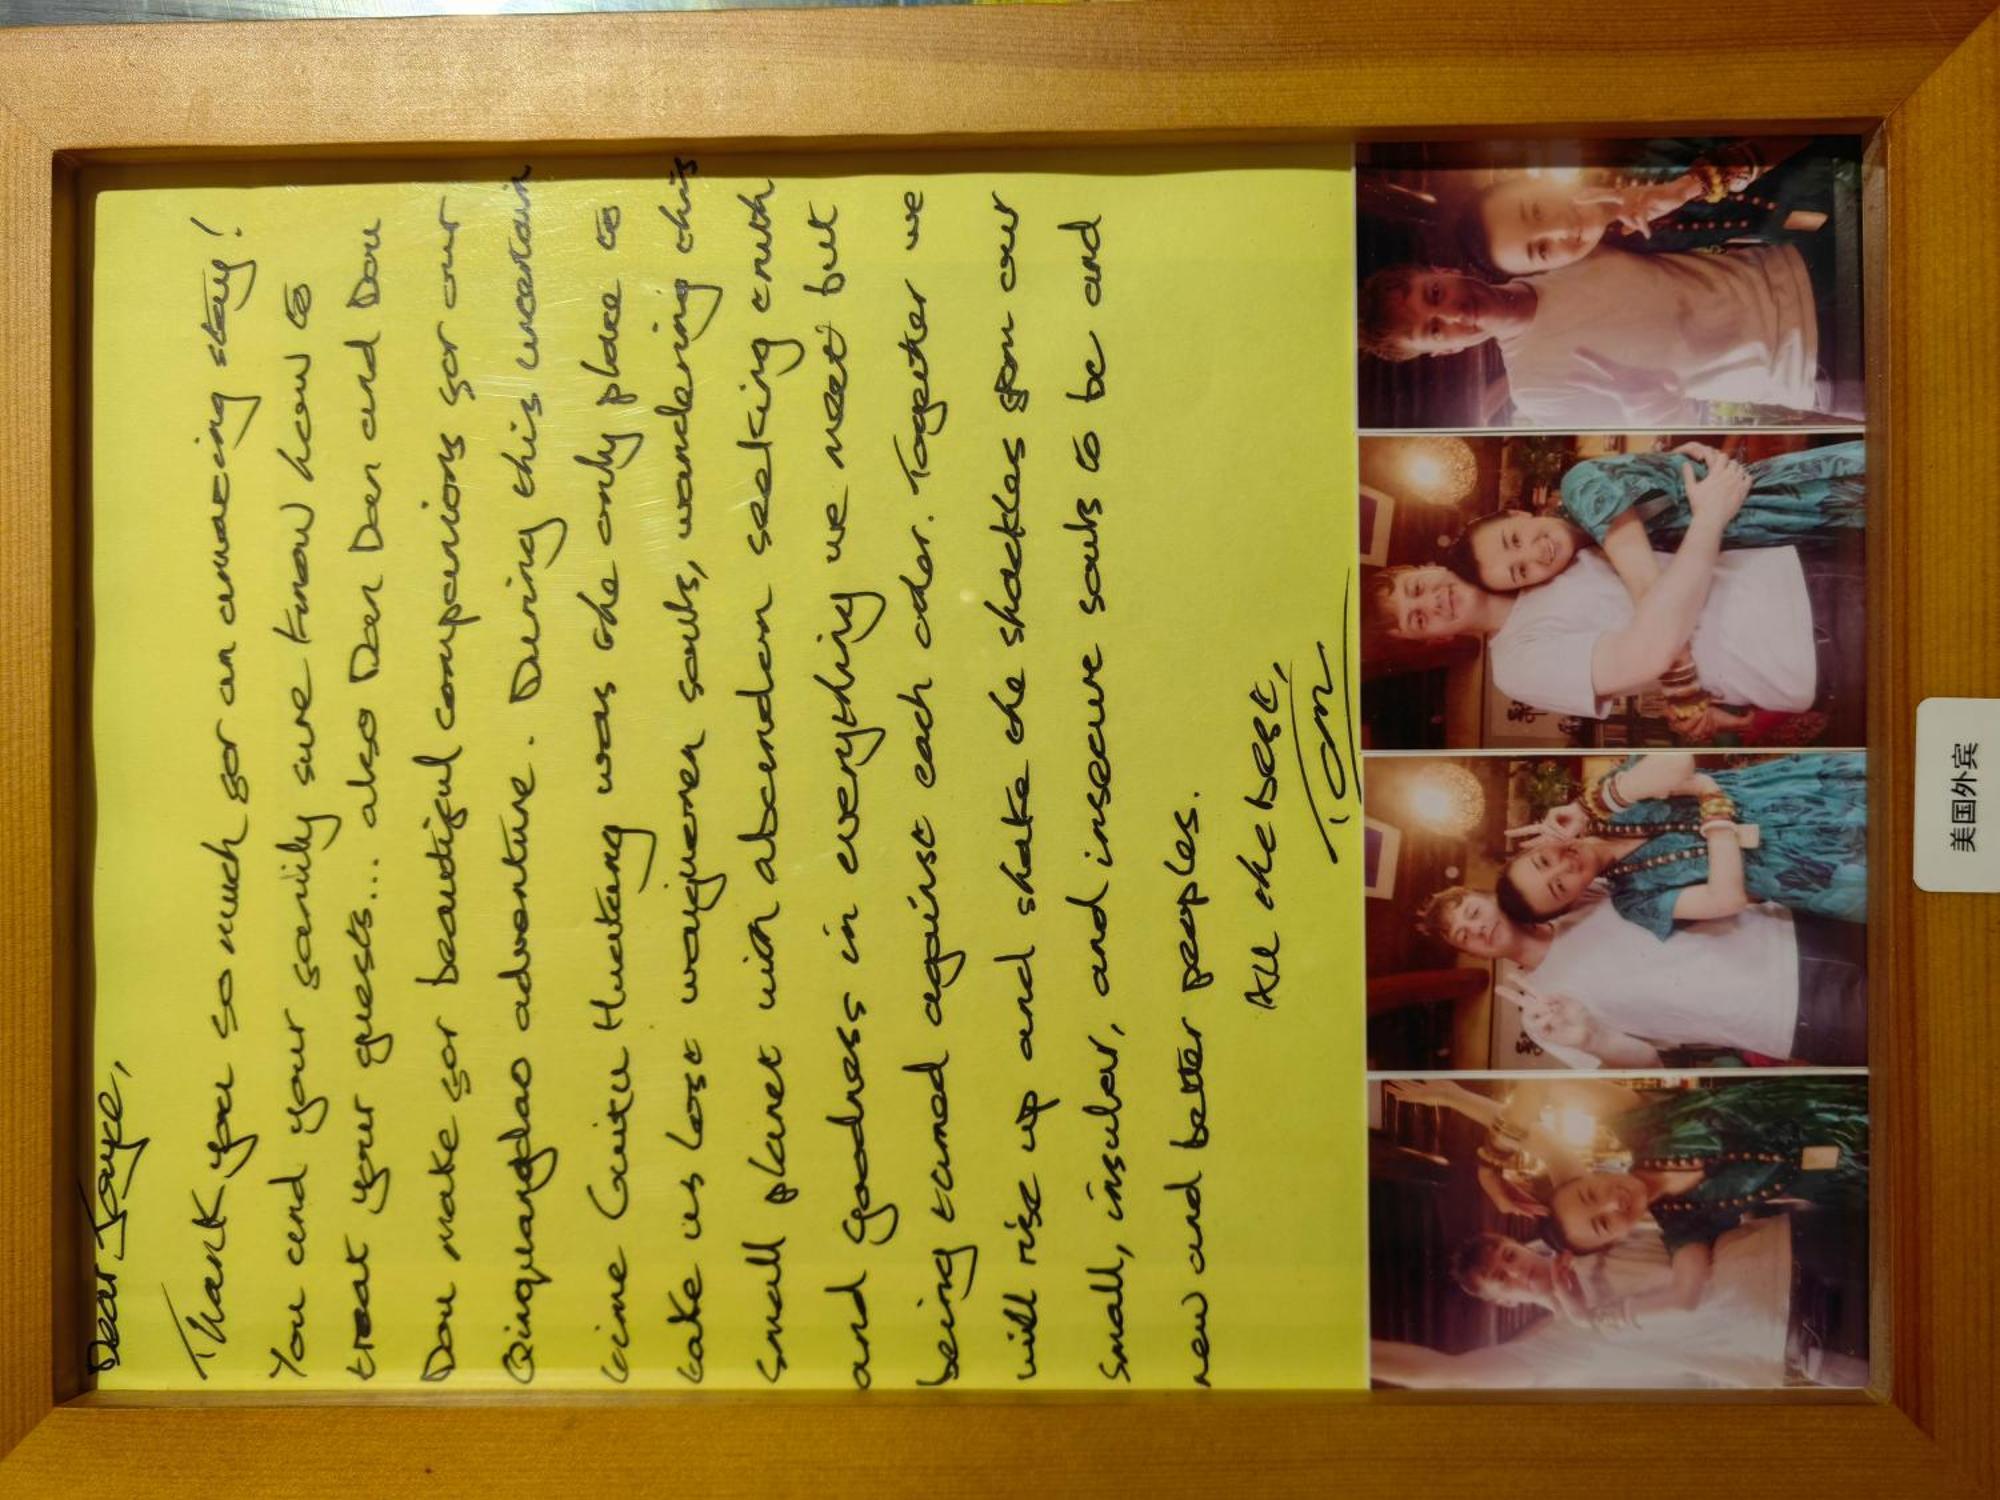 Dear Joyce,
Thank you so much for an amazing stay!
You and your family sure know how to
treat your guests... also Dan Dan and Dou
Dou make for beautiful companions for our
Qinquangdao adventure. During this uncertain
time was the only place to
take us lost wayguerer souls, wandering this
small planet with abandon seeking truth
and goodness in everything we meet but
being turned against each other. Together we
will rise up and shake the shackles from our
small, insular, and insecure souls to be and
new and better peoples.
All the best,
Tom
美国外宾